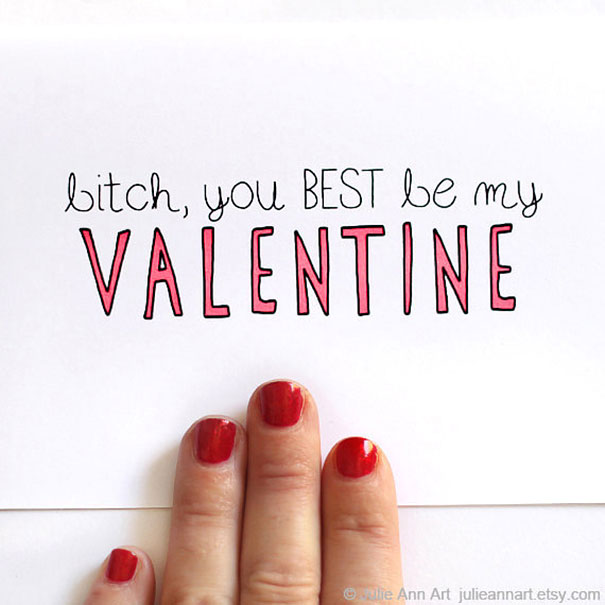 bitch, you BEST be my
VALENTINE
© Julie Ann Art julieannart.etsy.com